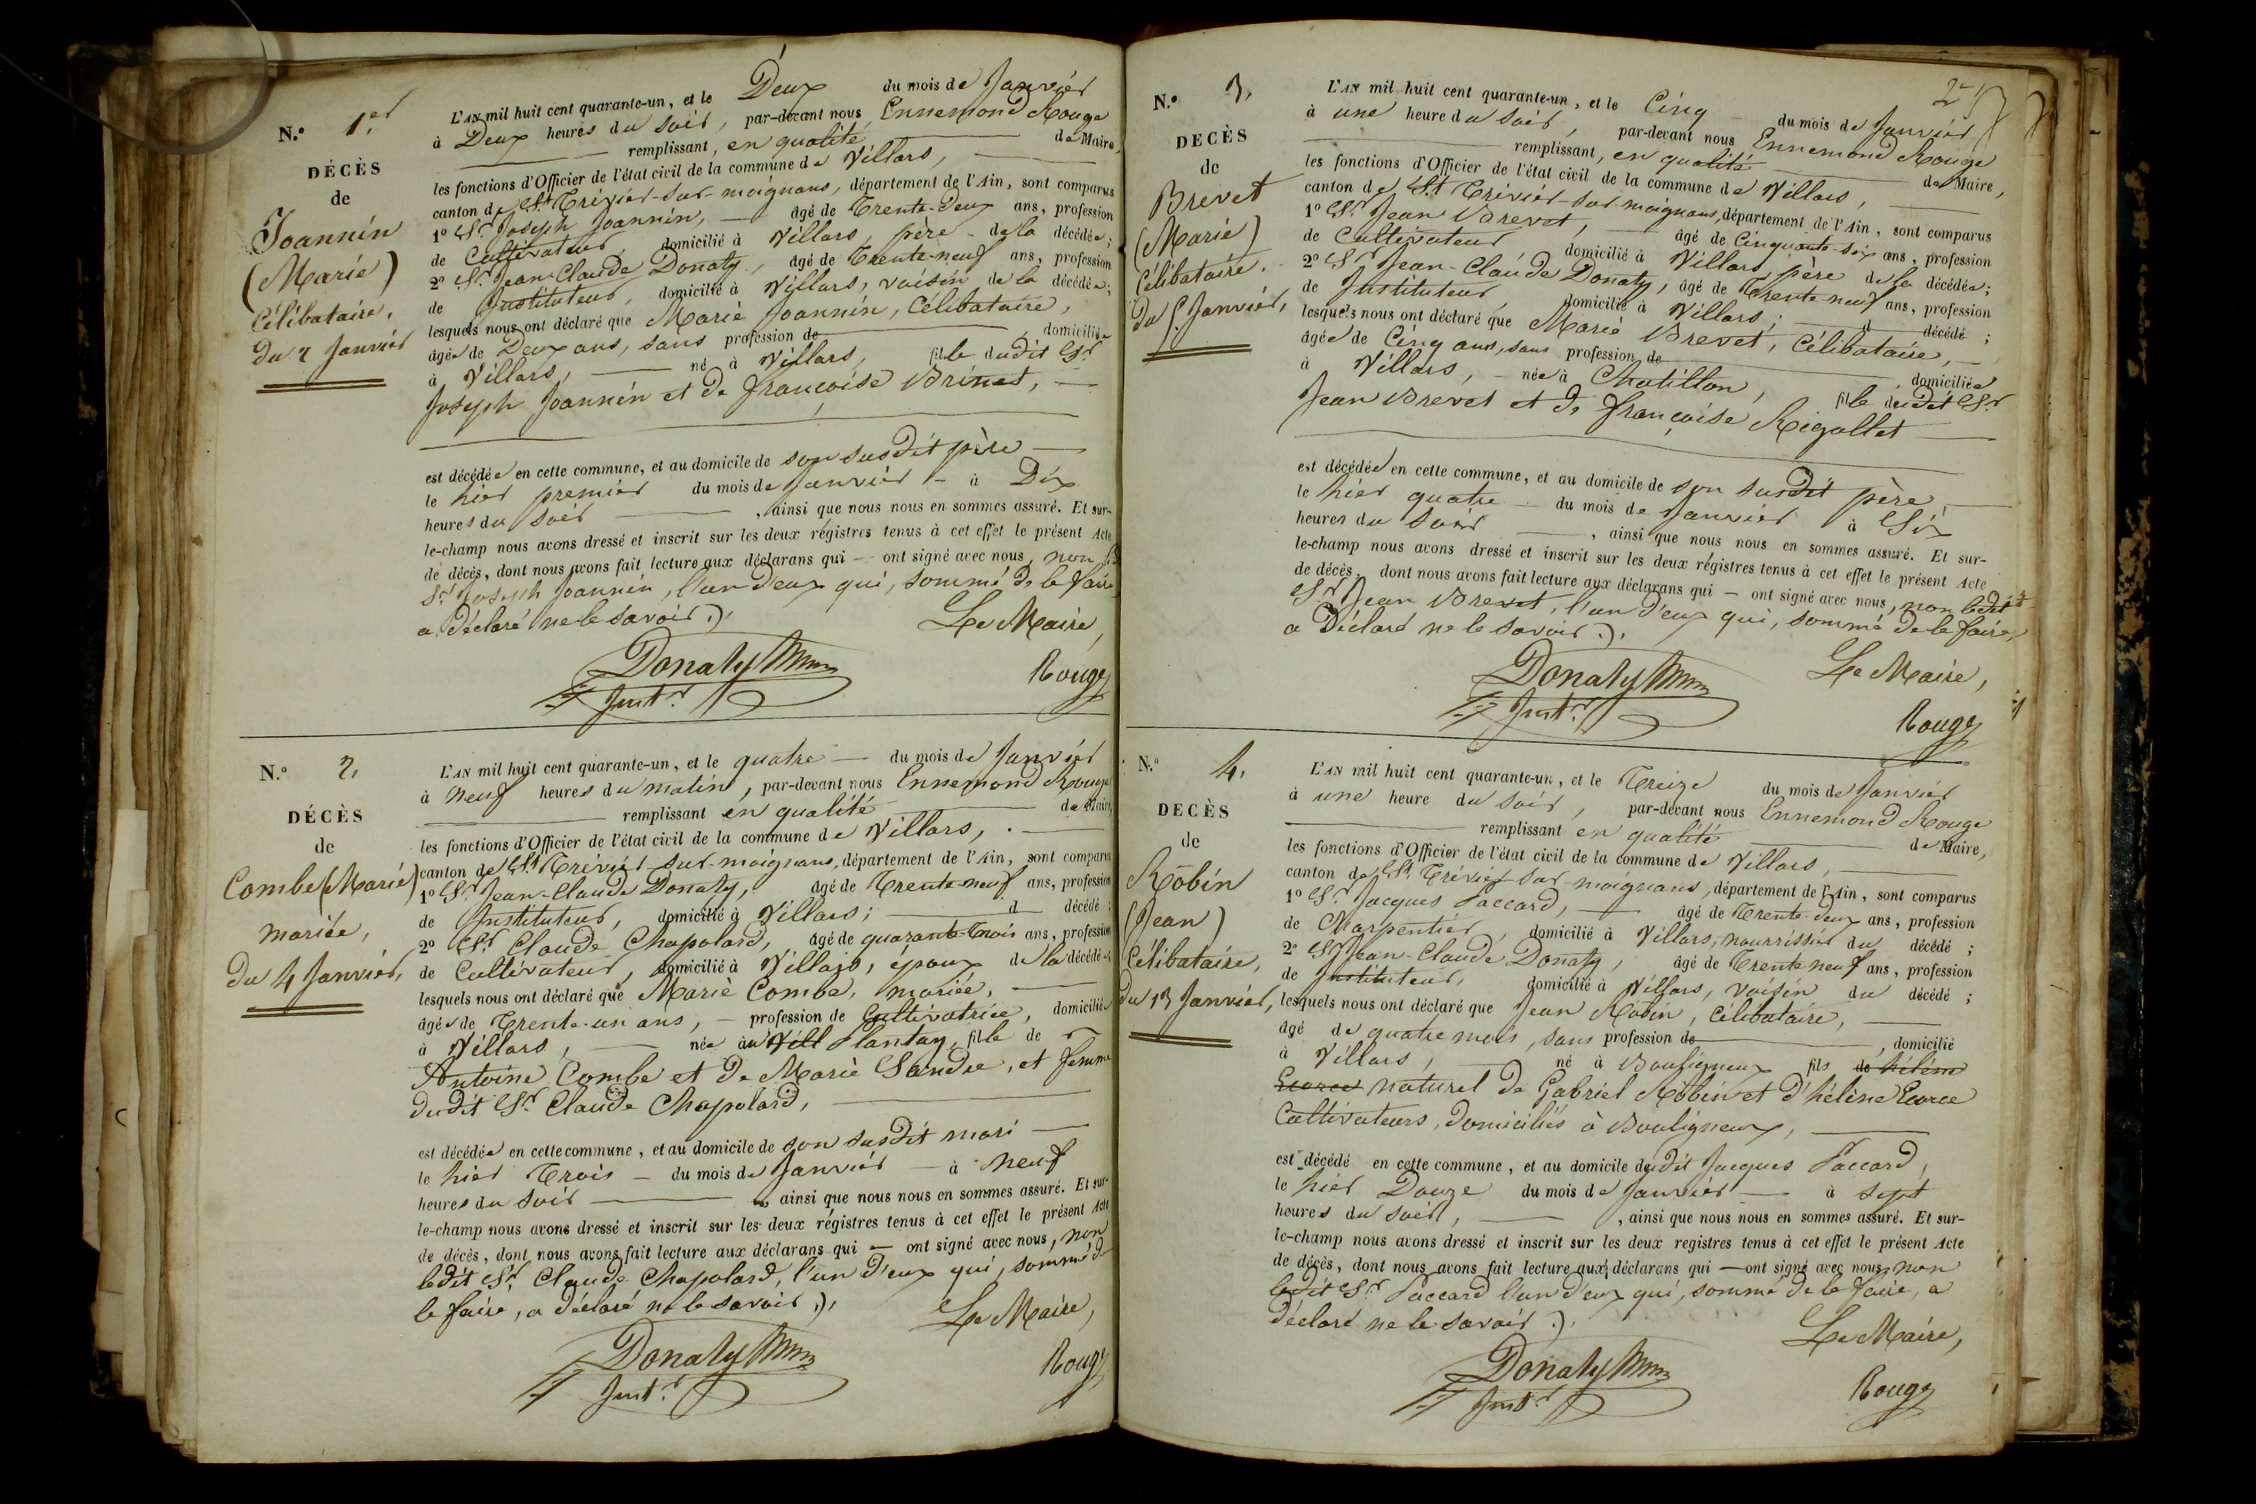 N.º 1.er
DÉCÈS
de
Joannin
(Marie)
Célibataire,
du 2 Janvier
L'AN mil huit cent quarante-un, et le Deux du mois de Janvier
à Deux heures du soir, par-devant nous Ennemond Rouge
remplissant, en qualité de Maire,
les fonctions d'Officier de l'état civil de la commune de Villars,
canton de St Trivier-sur-moignans, département de l'Ain, sont comparus
1º Sr. Joseph Joannin, âgé de Trente-deux ans, profession
de Cultivateur, domicilié à Villars, père de la décédée;
2º Sr. Jean-Claude Donaty, âgé de Trente-neuf ans, profession
de Instituteur, domicilié à Villars, voisin de la décédée;
lesquels nous ont déclaré que Marie Joannin, Célibataire,
âgée de Deux ans, sans profession de , domiciliée
à Villars, né à Villars, fille dudit Sr
Joseph Joannin et de françoise Brinet,
est décédée en cette commune, et au domicile de son susdit père
le hier premier du mois de Janvier à Dix
heures du soir , ainsi que nous nous en sommes assuré. Et sur-
le-champ nous avons dressé et inscrit sur les deux régistres tenus à cet effet le présent Acte
de décès, dont nous avons fait lecture aux déclarans qui ont signé avec nous, non
Sr. Joseph Joannin, l'un d'eux qui, sommé de le faire
a déclaré ne le savoir.
Le Maire,
Donaty
Instr.
Rouge
N.º 2,
DÉCÈS
de
Combe (Marie)
mariée,
du 4 Janvier,
L'AN mil huit cent quarante-un, et le quatre du mois de Janvier
à neuf heures du matin, par-devant nous Ennemond Rouge
remplissant en qualité de Maire,
les fonctions d'Officier de l'état civil de la commune de Villars,
canton de St Trivier-sur-moignans, département de l'Ain, sont comparus
1º Sr. Jean-Claude Donaty, âgé de Trente-neuf ans, profession
de Instituteur, domicilié à Villars; d décédé;
2º Sr Claude Chapolard, âgé de quarante-trois ans, profession
de Cultivateur, domicilié à Villars, époux de la décédée;
lesquels nous ont déclaré que Marie Combe, mariée,
âgée de Trente-un ans, profession de Cultivatrice, domiciliée
à Villars, née au Vill Plantay, fille de
Antoine Combe et de Marie Sandre, et femme
dudit Sr. Claude Chapolard,
est décédée en cette commune, et au domicile de son susdit mari
le hier Trois du mois de Janvier à neuf
heures du soir ainsi que nous nous en sommes assuré. Et sur-
le-champ nous avons dressé et inscrit sur les deux régistres tenus à cet effet le présent Acte
de décès, dont nous avons fait lecture aux déclarans qui ont signé avec nous, non
ledit Sr. Claude Chapolard, l'un d'eux qui, sommé de
le faire, a déclaré ne le savoir.
Le Maire,
Donaty
Instr.
Rouge
2
N.º 3,
DECÈS
de
Brevet
(Marie)
Célibataire.
du 5 Janvier,
L'AN mil huit cent quarante-un, et le Cinq du mois de Janvier
à une heure du soir, par-devant nous Ennemond Rouge
remplissant, en qualité de Maire,
les fonctions d'Officier de l'état civil de la commune de Villars,
canton de St Trivier-sur-moignans, département de l'Ain, sont comparus
1º Sr. Jean Brevet, âgé de Cinquante-six ans, profession
de Cultivateur domicilié à Villars père de la décédée;
2º Sr Jean-Claude Donaty, âgé de Trente-neuf ans, profession
de Instituteur domicilié à Villars; d décédé;
lesquels nous ont déclaré que Marie Brevet, Célibataire,
âgée de Cinq ans, sans profession de , domiciliée
à Villars, née à Chatillon, fille dudit Sr
Jean Brevet et de françoise Rigollet
est décédée en cette commune, et au domicile de son susdit père
le hier quatre du mois de Janvier à Six
heures du soir , ainsi que nous nous en sommes assuré. Et sur-
le-champ nous avons dressé et inscrit sur les deux régistres tenus à cet effet le présent Acte
de décès, dont nous avons fait lecture aux déclarans qui ont signé avec nous, non ledit
Sr Jean Brevet, l'un d'eux qui, sommé de le faire,
a Déclaré ne le savoir.
Le Maire,
Donaty
Instr.
Rouge
N.º 4,
DECÈS
de
Robin
(Jean)
Célibataire,
du 13 Janvier,
L'AN mil huit cent quarante-un, et le Treize du mois de Janvier
à une heure du soir, par-devant nous Ennemond Rouge
remplissant en qualité de Maire,
les fonctions d'Officier de l'état civil de la commune de Villars,
canton de St. Trivier-sur-moignans, département de l'Ain, sont comparus
1º Sr. Jacques Paccard, âgé de Trente-deux ans, profession
de Charpentier, domicilié à Villars, nourrissier du décédé;
2º Sr Jean-Claude Donaty, âgé de Trente-neuf ans, profession
de Instituteur, domicilié à Villars, voisin du décédé;
lesquels nous ont déclaré que Jean Robin, célibataire,
âgé de quatre mois, sans profession de , domicilié
à Villars, né à Bouligneux fils de hélène
Ecorce naturel de Gabriel Robin et d'hélène Ecorce
Cultivateurs, domiciliés à Bouligneux,
est décédé en cette commune, et au domicile dudit Jacques Paccard,
le hier Douze du mois de Janvier à sept
heures du soir, , ainsi que nous nous en sommes assuré. Et sur-
le-champ nous avons dressé et inscrit sur les deux registres tenus à cet effet le présent Acte
de décès, dont nous avons fait lecture aux déclarans qui ont signé avec nous, non
ledit Sr. Paccard l'un d'eux qui, sommé de le faire, a
déclaré ne le savoir.
Le Maire,
Donaty
Instr.
Rouge